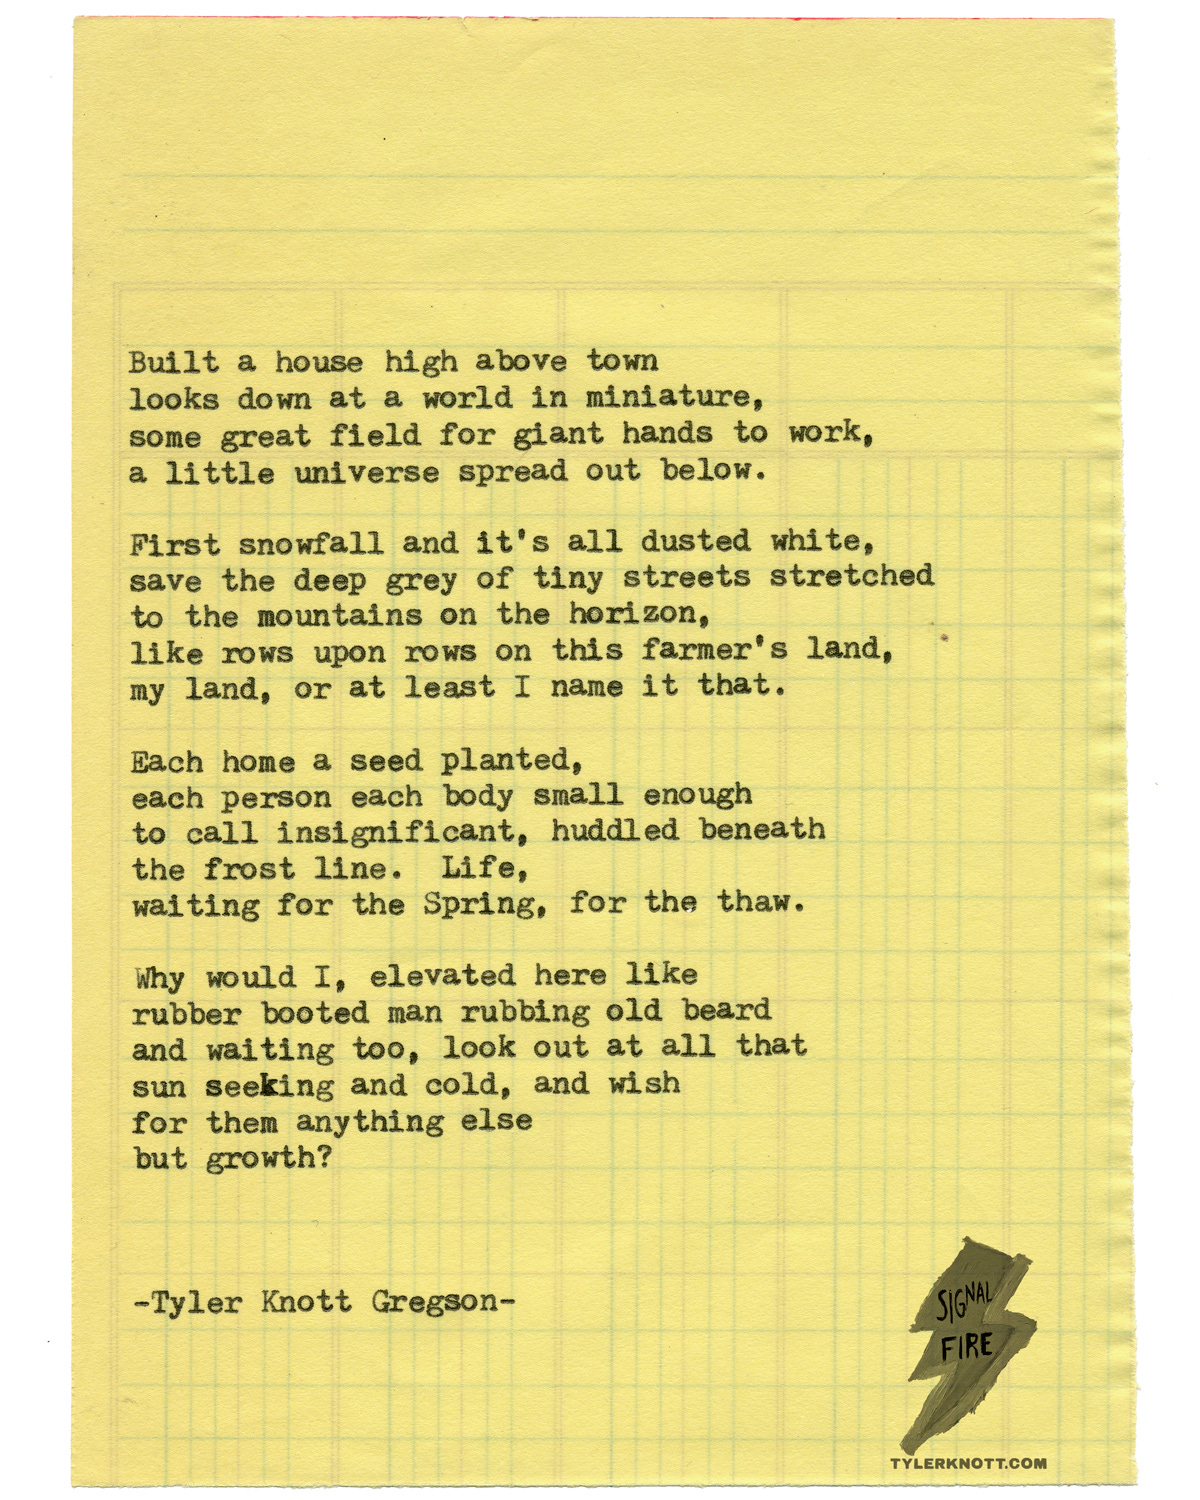 Built a house high above town
looks down at a world in miniature,
some great field for giant hands to work,
a little universe spread out below.

First snowfall and it's all dusted white,
save the deep grey of tiny streets stretched
to the mountains on the horizon,
like rows upon rows on this farmer's land,
my land, or at least I name it that.

Each home a seed planted,
each person each body small enough
to call insignificant, huddled beneath
the frost line.  Life,
waiting for the Spring, for the thaw.

Why would I, elevated here like
rubber booted man rubbing old beard
and waiting too, look out at all that
sun seeking and cold, and wish
for them anything else
but growth?

-Tyler Knott Gregson-

SIGNAL
FIRE
TYLERKNOTT.COM